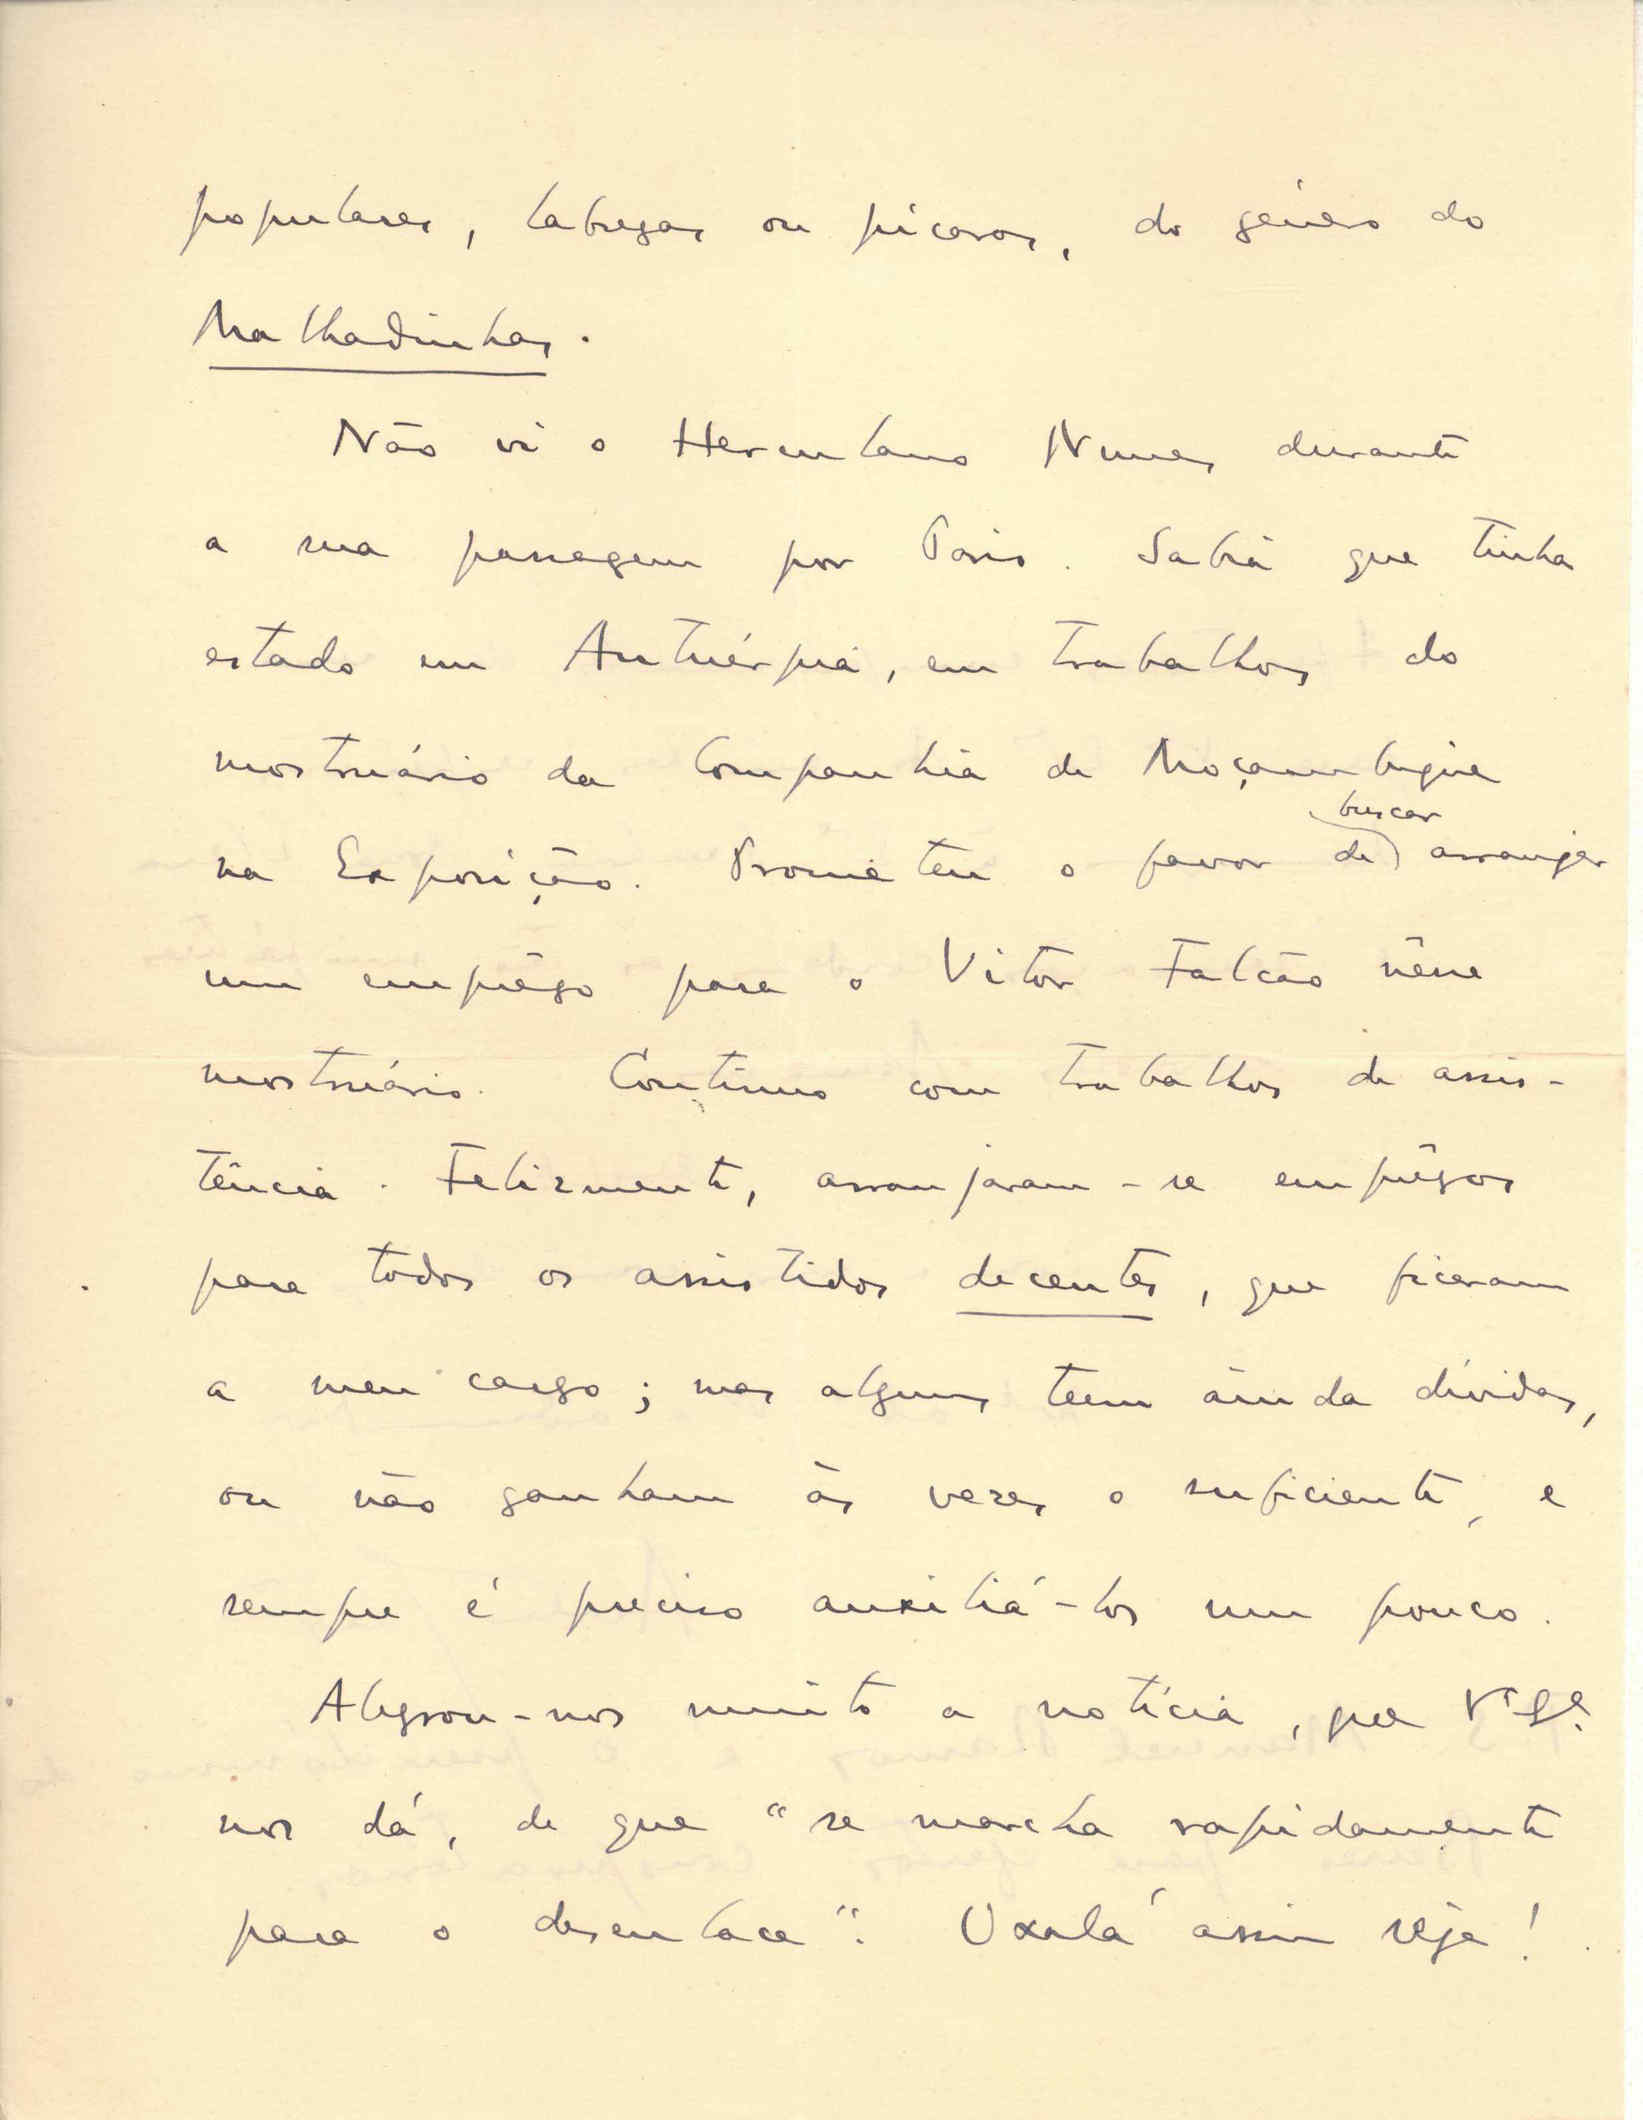 populares, labregas ou pícaros, do género do
Malhadinhas.
Não vi o Herculano Nunes durante
a sua passagem por Paris. Sabia que tinha
estado em Antuérpia, em trabalhos do
mostruário da Companhia de Moçambique
na Exposição. Prometeu o favor de buscar arranjar
um emprêgo para o Vitor Falcão nêsse
mostruário. Continuo com trabalhos de assis-
tência. Felizmente, arranjaram-se emprêgos
para todos os assistidos decentes, que ficaram
a meu cargo; mas alguns teem àinda dívidas,
ou não ganham às vezes o suficiente, e
sempre é preciso auxiliá-los um pouco.
Alegrou-nos muito a notícia, que V. Sª.
nos dá, de que "se marcha rapidamente
para o desenlace". Oxalá assim seja!